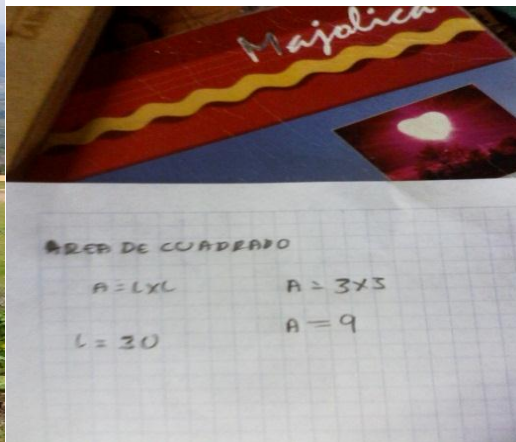 Majolica
AREA DE CUADRADO
A = L x L
A = 3 x 3
L = 3U
A = 9